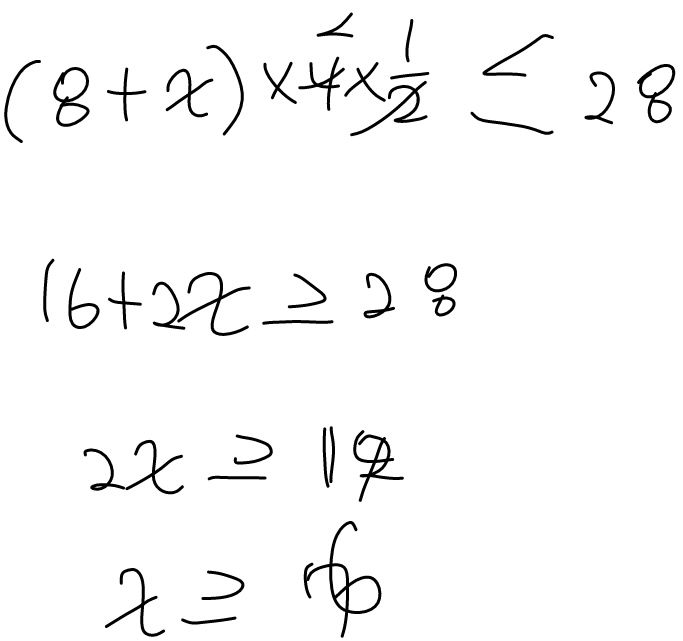 (8+x)×4×1/2 ≤ 28
2
16+2x ≥ 28
2x ≥ 12
x ≥ 6